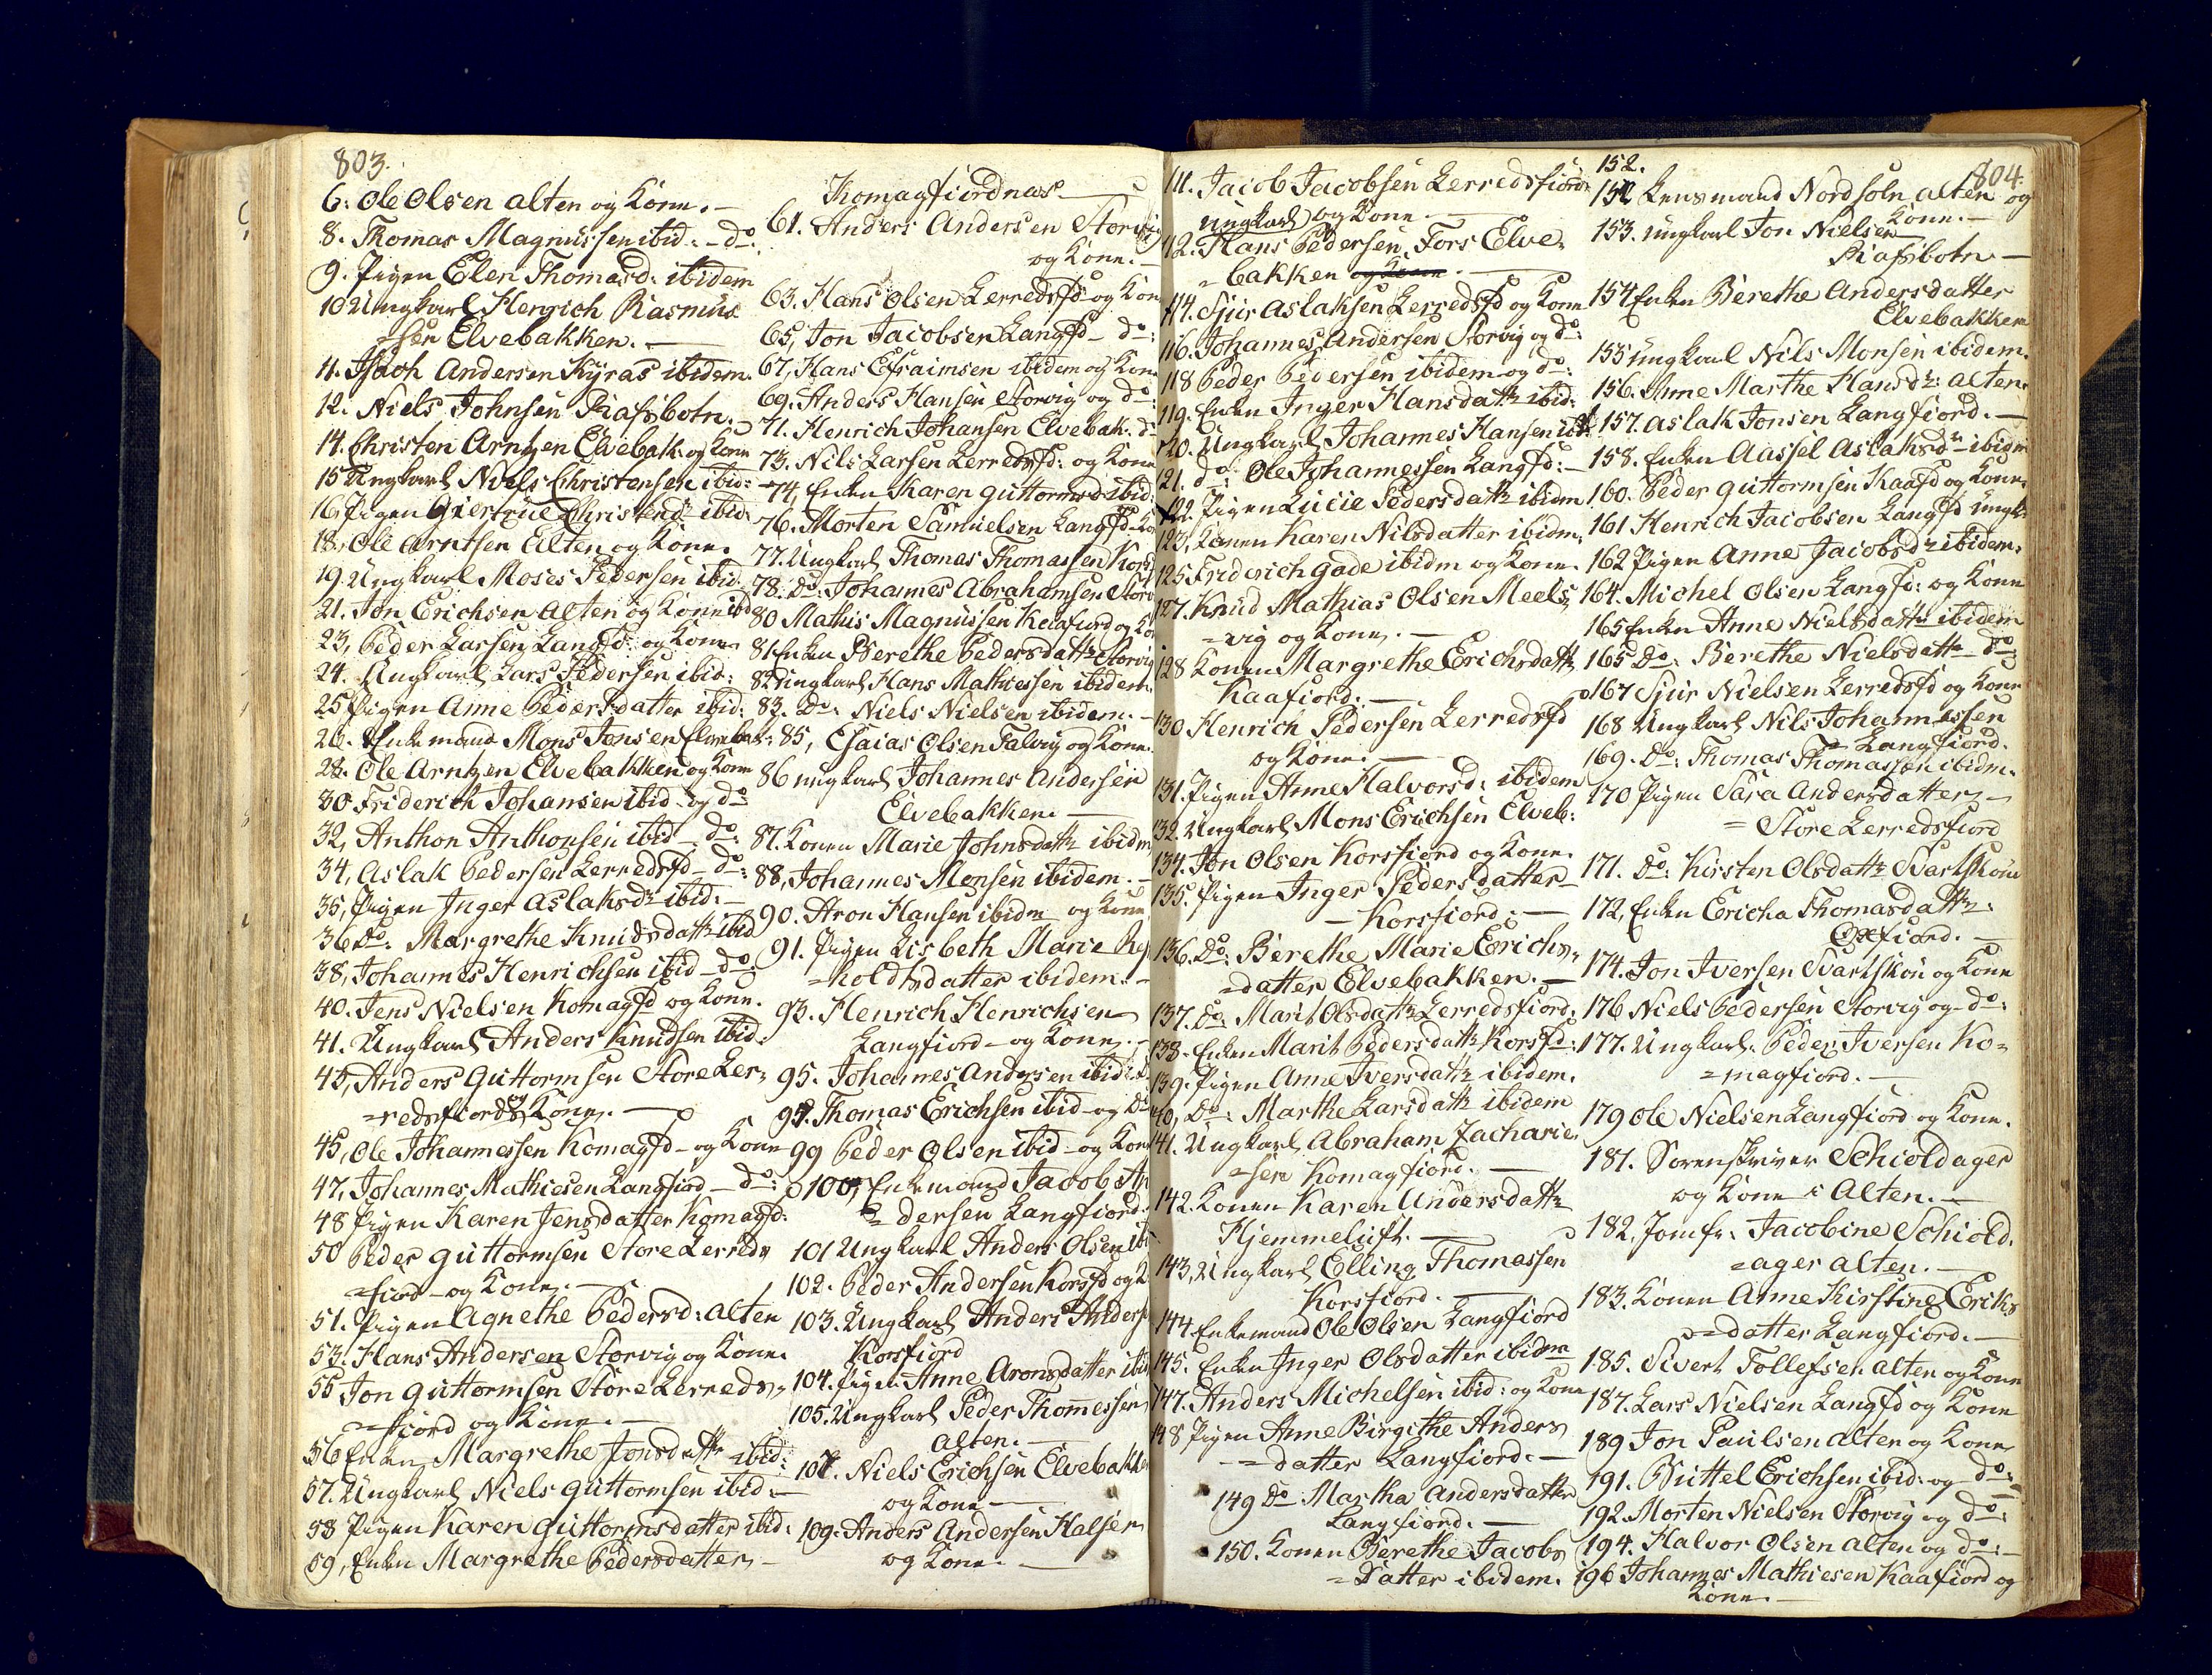 803.
6. Ole Olsen Alten og Kone. —
8. Thomas Magnussen ibid: — do:
9. Pigen Elen Thomasd: ibidem
10 Ungkarl Henrich Rasmus
=sen Elvebakken. —
11. Isach Andersen Kyras ibidem.
12. Niels Johnsen Rafsbotn.
14. Christen Arntzen Elvebak: og Kone
15 Ungkarl Niels Christensen ibid: —
16, Pigen Giertrue Christend: ibid:
18, Ole Arntsen Alten og Kone.
19. Ungkarl Moses Pedersen ibid.
21. Jon Erichsen Alten og Kone ibd
23, Peder Larsen Langfd: og Kone
24. Ungkarl Lars Pedersen ibid:
25 Pigen Anne Pedersdatter ibid:
26. Enkemand Mons Jonsen Elvebak:
28. Ole Arntzen Elvebakken og Kone
30 Friderich Johansen ibid — og do
32, Anthon Anthonsen ibid — do:
34, Aslak Pedersen Lerredsfd — do:
35, Pigen Inger Aslaksdr ibid: —
36 Do: Margrethe Knudsdattr ibid
38, Johannes Henrichsen ibid — do:
40. Jens Nielsen Komagfd og Kone.
41. Ungkarl Anders Knudsen ibid:
43, Anders Guttormsen Store Ler,
=redsfiord og Kone. —
45, Ole Johannessen Komagfd — og Kone
47, Johannes Mathiesen Langfiord — do:
48 Pigen Karen Jensdatter Komagfd:
50 Peder Guttormsen Store Lerreds
=fiord — og Kone. —
51. Pigen Agnethe Pedersd: Alten
53. Hans Andersen Storvig og Kone.
55 Jon Guttormsen Store Lerreds,
=fiord og Kone. —
56 Enken Margrethe Jonsdattr ibid:
57. Ungkarl Niels Guttormsen ibid: —
58 Pigen Karen Guttormsdatter ibid:
59, Enken Margrethe Pedersdatter —
Komagfiordnæs —
61. Anders Andersen Storvig
og Kone. —
63. Hans Olsen Lerredsfd og Kone
65, Jon Jacobsen Langfd — do:
67, Hans Efraimsen ibidem og Kone
69. Anders Hansen Storvig og do:
71. Henrich Johansen Elvebak. do
73. Nils Larsen Lerredsfd: og Kone
74, Enken Karen Guttormsd: ibid:
76. Morten Samuelsen Langfd — Kone
77. Ungkarl Thomas Thomassen
78. Do: Johannes Abrahamsen
80 Mathis Magnussen Kaafiord og
81 Enken Berethe Pedersdattr Storvig
82 Ungkarl Hans Mathiessen ibidem.
83. Do: Niels Nielsen ibidem. —
85, Esaias Olsen Talvig og Kone.
86 Ungkarl Johannes Andersen
Elvebakken. —
87. Konen Marie Johnsdattr ibidm
88, Johannes Monsen ibidem. —
90. Aron Hansen ibidm og Kone
91. Pigen Lisbeth Marie
=holdtsdatter ibidem. —
93. Henrich Henrichsen
Langfiord — og Kone. —
95. Johannes Andersen ibid:
97. Thomas Erichsen ibid — og Do
99 Peder Olsen ibid — og Kone
100, Enkemand Jacob An
=dersen Langfiord.
101 Ungkarl Anders Olsen
102. Peder Andersen Korsfd og
103. Ungkarl Anders
Korsfiord
104. Pigen Anne Aronsdatter
105. Ungkarl Peder Thomessen
Alten. —
107. Niels Erichsen Elvebakken
og Kone —
109. Anders Andersen Halsen
og Kone. —
804.
111. Jacob Jacobsen Lerredsfiord
Ungkarl og Kone. —
112. Hans Pedersen Fors Elve,
=bakken og Kone. —
114. Siur Aslaksen Lerredsfd og Kone
116. Johannes Andersen Storvig og do:
118 Peder Pedersen ibidem og do:
119. Enken Inger Hansdattr ibid:
120. Ungkarl Johannes Hansen ibd:
121. do: Ole Johannessen Langfd: —
122. Pigen Lucie Pedersdattr ibidm
123, Konen Karen Nilsdatter ibidm.
125 Friderich Gade ibidm og Kone.
127. Knud Mathias Olsen Meels,
=vig og Kone. —
128 Konen Margrethe Erichsdattr
Kaafiord. —
130 Henrich Pedersen Lerredsfd
og Kone. —
131. Pigen Anne Halvorsd: ibidem
132. Ungkarl Mons Erichsen Elveb:
134. Jon Olsen Korsfiord og Kone.
135. Pigen Inger Pedersdatter —
— Korsfiord; —
136. Do: Berethe Marie Erichs,
=datter Elvebakken. —
137. Do: Marit Olsdattr Lerredsfiord;
138. Enken Marit Pedersdattr Korsfd:
139. Pigen Anne Iversdattr ibidem.
140, Do: Marthe Larsdattr ibidem
141. Ungkarl Abraham Zacharie,
=sen Komagfiord. —
142. Konen Karen Andersdattr
Hjemmeluft. —
143, Ungkarl Elling Thomassen
Korsfiord. —
144. Enkemand Ole Olsen Langfiord
145. Enken Inger Olsdatter ibidm
147. Anders Michelsen ibid: og Kone
148 Pigen Anne Birgithe Anders
=datter Langfiord. —
149 Do: Martha Andersdatter
Langfiord. —
150. Konen Berethe Jacobs
=Datter ibidem.
152.
152 Lensmand Nordsoln Alten og
Kone. —
153. Ungkarl Jon Nielsen
Rafsbotn —
154 Enken Berethe Andersdatter
Elvebakken
155 Ungkarl Nils Monsen ibidem.
156. Anne Marthe Hansdr: Alten.
157. Aslak Jonsen Langfiord. —
158. Enken Aassel Aslaksdr ibidm
160. Peder Guttormsen Kaafd og Kone.
161 Henrich Jacobsen Langfd Ungk:
162 Pigen Anne Jacobsdr ibidem.
164. Michel Olsen Langfd: og Kone
165 Enken Anne Nielsdattr ibidem
165 Do: Berethe Nielsdattr — Do:
167 Siur Nielsen Lerredsfd og Kone
168 Ungkarl Nils Johannessen
Langfiord.
169. Do: Thomas Thomassen ibidm.
170 Pigen Sara Andersdatter —
= Store Lerredsfiord
171. Do: Kirsten Olsdattr Svartskou
172, Enken Ericha Thomasdattr:
Oxfiord. —
174. Jon Iversen Svartskou og Kone
176 Niels Pedersen Storvig og — do:
177. Ungkarl. Peder Iversen Ko=
=magfiord. —
179 Ole Nielsen Langfiord og Kone.
181. Sorenskriver Schioldager
og Kone i Alten. —
182, Jomfr: Jacobine Schiold.
=ager Alten. —
183. Konen Anne Kirstine Eriks
=datter Langfiord. —
185. Sivert Tollefsen Alten og Kone
187. Lars Nielsen Langfd og Kone
189 Jon Paulsen Alten og Kone
191. Buttel Erichsen ibid: og do:
192. Morten Nielsen Storvig og do:
194. Halvor Olsen Alten og do: —
196 Johannes Mathiesen Kaafiord og
Kone. —